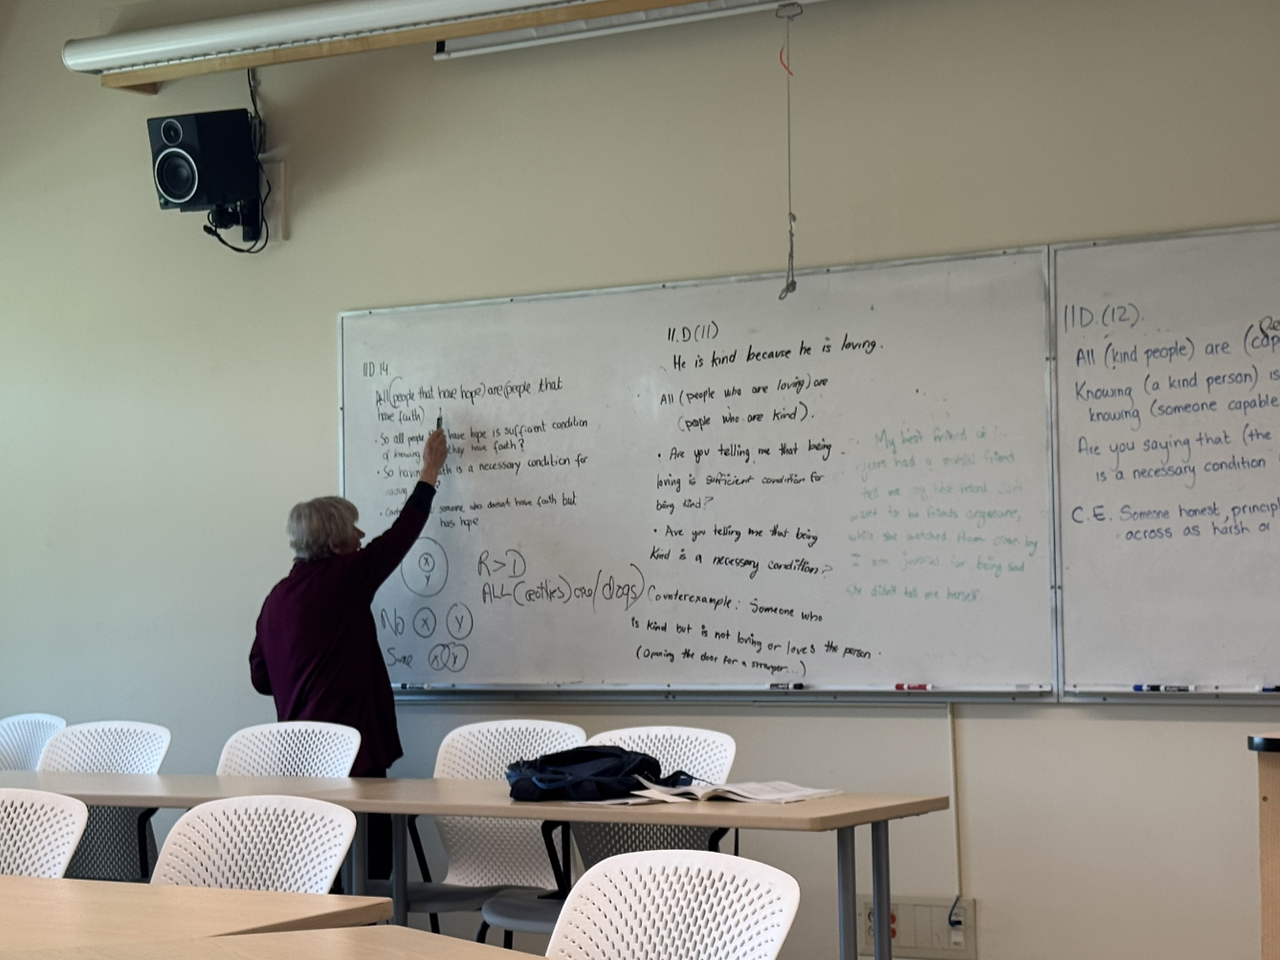 IID.14.
All (people that have hope) are (people that
have faith)
• So all people have hope is sufficient condition
of knowing they have faith?
• So having faith is a necessary condition for
someone who doesn't have faith but
has hope
X
Y
No X Y
Some X Y
R > D
ALL (   ) are (dogs)
II.D(11)
He is kind because he is loving.
All (people who are loving) are
(people who are kind).
• Are you telling me that being
loving is sufficient condition for
being kind?
• Are you telling me that being
kind is a necessary condition?
Counterexample: Someone who
is kind but is not loving or loves the person.
(Opening the door for a stranger...)
My best friend of
years had a mutual friend
tell me my best friend didn't
want to be friends anymore,
while she watched from close by
I am justified for being sad
she didn't tell me herself
IID.(12).
All (kind people) are (
Knowing (a kind person) is
knowing (someone capable
Are you saying that (the
is a necessary condition
C.E. Someone honest, princip
across as harsh or